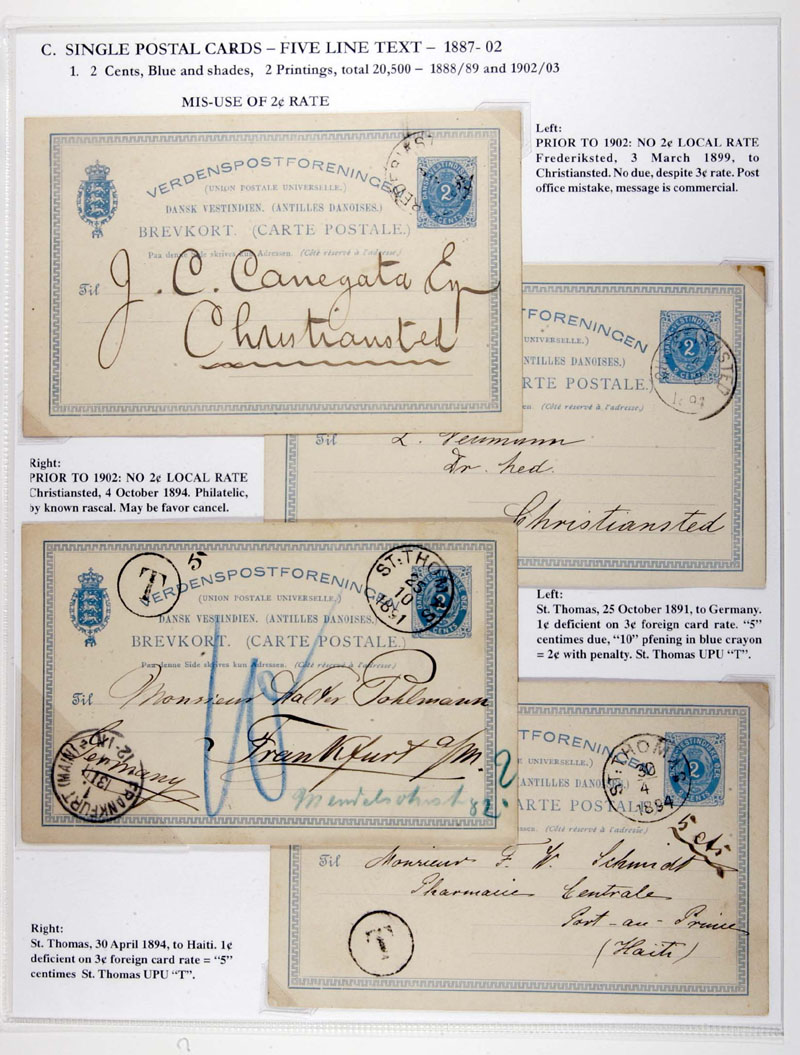 C. SINGLE POSTAL CARDS – FIVE LINE TEXT – 1887- 02
1. 2 Cents, Blue and shades, 2 Printings, total 20,500 – 1888/89 and 1902/03
MIS-USE OF 2¢ RATE
Left:
PRIOR TO 1902: NO 2¢ LOCAL RATE
Frederiksted, 3 March 1899, to
Christiansted. No due, despite 3¢ rate. Post
office mistake, message is commercial.
VERDENSPOSTFORENINGEN
(UNION POSTALE UNIVERSELLE.)
DANSK VESTINDIEN. (ANTILLES DANOISES.)
BREVKORT. (CARTE POSTALE.)
Paa denne Side skrives kun Adressen. (Côté réservé à l'adresse.)
2
CENTS
Til
J. C. Canegata Esq
Christiansted
Right:
PRIOR TO 1902: NO 2¢ LOCAL RATE
Christiansted, 4 October 1894. Philatelic,
by known rascal. May be favor cancel.
FORENINGEN
UNIVERSELLE.)
ANTILLES DANOISES.)
CARTE POSTALE.)
(Côté réservé à l'adresse.)
2
CENTS
Til
L. Neumann
Christiansted
Left:
St. Thomas, 25 October 1891, to Germany.
1¢ deficient on 3¢ foreign card rate. “5”
centimes due, “10” pfening in blue crayon
= 2¢ with penalty. St. Thomas UPU “T”.
T
5
ST: THOMAS
25
10
1891
VERDENSPOSTFORENINGEN
(UNION POSTALE UNIVERSELLE.)
DANSK VESTINDIEN. (ANTILLES DANOISES.)
BREVKORT. (CARTE POSTALE.)
Paa denne Side skrives kun Adressen. (Côté réservé à l'adresse.)
2
CENTS
Til
Monsieur Walter Pohlmann
Frankfurt a/M.
Germany
10
FRANKFURT (MAIN)
82.
2
Right:
St. Thomas, 30 April 1894, to Haiti. 1¢
deficient on 3¢ foreign card rate = “5”
centimes St. Thomas UPU “T”.
FORENINGEN
UNIVERSELLE.)
ANTILLES DANOISES.)
CARTE POSTALE.)
(Côté réservé à l'adresse.)
ST: THOMAS
30
4
1894
2
CENTS
5 cts
Til
Monsieur F. W. Schmidt
Pharmacie Centrale
Port-au-Prince
(Haiti)
T